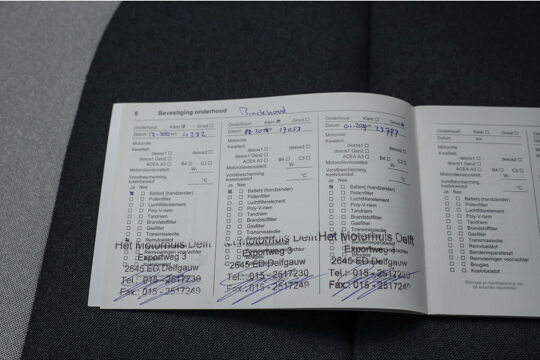 6 Bevestiging onderhoud
Onderhoud: Klein Groot
Datum: km
Motorolie
Kwaliteit:
dexos1 dexos2
dexos1 Gen2
ACEA A3 B4 C3
Motorolieviscositeit: W-
Vorstbescherming,
koelvloeistof °C
Ja Nee
Batterij (handzender)
Pollenfilter
Luchtfilterelement
Poly-V-riem
Tandriem
Brandstoffilter
Gasfilter
Transmissieolie
Remvloeistof
Remvoeringen voor/achter
Het Motorhuis Delft
Exportweg 3
2645 ED Delfgauw
Tel.: 015 - 2517230
Fax.: 015 - 2517249
Onderhoud: Klein Groot
Datum: 17.053
Motorolie
Kwaliteit:
dexos1 dexos2
dexos1 Gen2
ACEA A3 B4 C3
Motorolieviscositeit: W-
Vorstbescherming,
koelvloeistof °C
Ja Nee
Batterij (handzender)
Pollenfilter
Luchtfilterelement
Poly-V-riem
Tandriem
Brandstoffilter
Gasfilter
Transmissieolie
Motorhuis Delft
Exportweg 3
2645 ED Delfgauw
Tel.: 015 - 2517230
Fax.: 015 - 2517249
Onderhoud: Klein Groot
Datum:
Motorolie
Kwaliteit:
dexos1 dexos2
dexos1 Gen2
ACEA A3 B4 C3
Motorolieviscositeit: W-
Vorstbescherming,
koelvloeistof °C
Ja Nee
Batterij (handzender)
Pollenfilter
Luchtfilterelement
Poly-V-riem
Tandriem
Brandstoffilter
Gasfilter
Het Motorhuis Delft
Exportweg 3
2645 ED Delfgauw
Tel.: 015 - 2517230
Fax.: 015 - 2517249
Onderhoud:
Datum: km
Motorolie
Kwaliteit:
dexos1
dexos1 Gen2
ACEA A3
Motorolieviscositeit:
Vorstbescherming,
koelvloeistof
Ja Nee
Batterij (handzender)
Pollenfilter
Luchtfilterelement
Poly-V-riem
Tandriem
Brandstoffilter
Gasfilter
Transmissieolie
Remvloeistof
Sonderreparatieset
Remvoeringen voor/achter
Bougies
Koelvloeistof